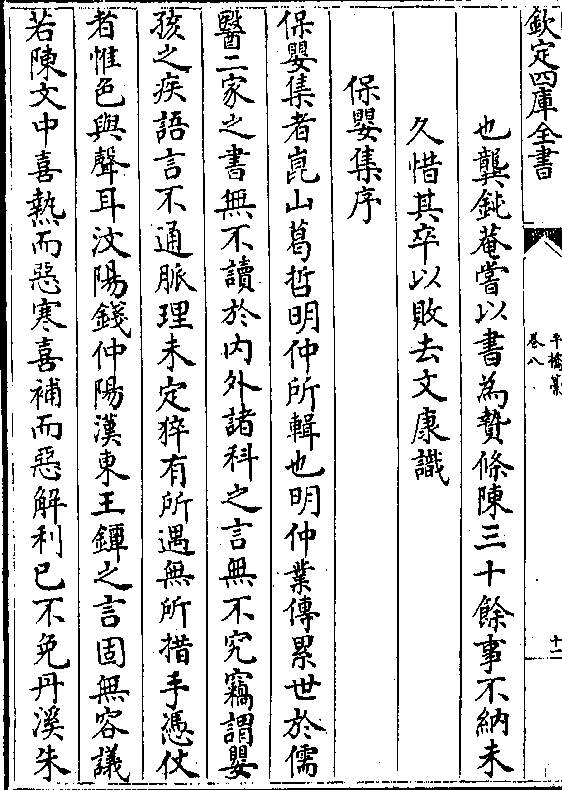 欽定四庫全書
平橋藁
卷八
十二
也龔鈍菴嘗以書為贄條陳三十餘事不納未
久惜其卒以敗去文康識
保嬰集序
保嬰集者崑山葛哲明仲所輯也明仲業傳累世於儒
醫二家之書無不讀於内外諸科之言無不究竊謂嬰
孩之疾語言不通脈理未定猝有所遇無所措手憑仗
者惟色與聲耳汶陽錢仲陽漢東王鐔之言固無容議
若陳文中喜熱而惡寒喜補而惡解利已不免丹溪朱